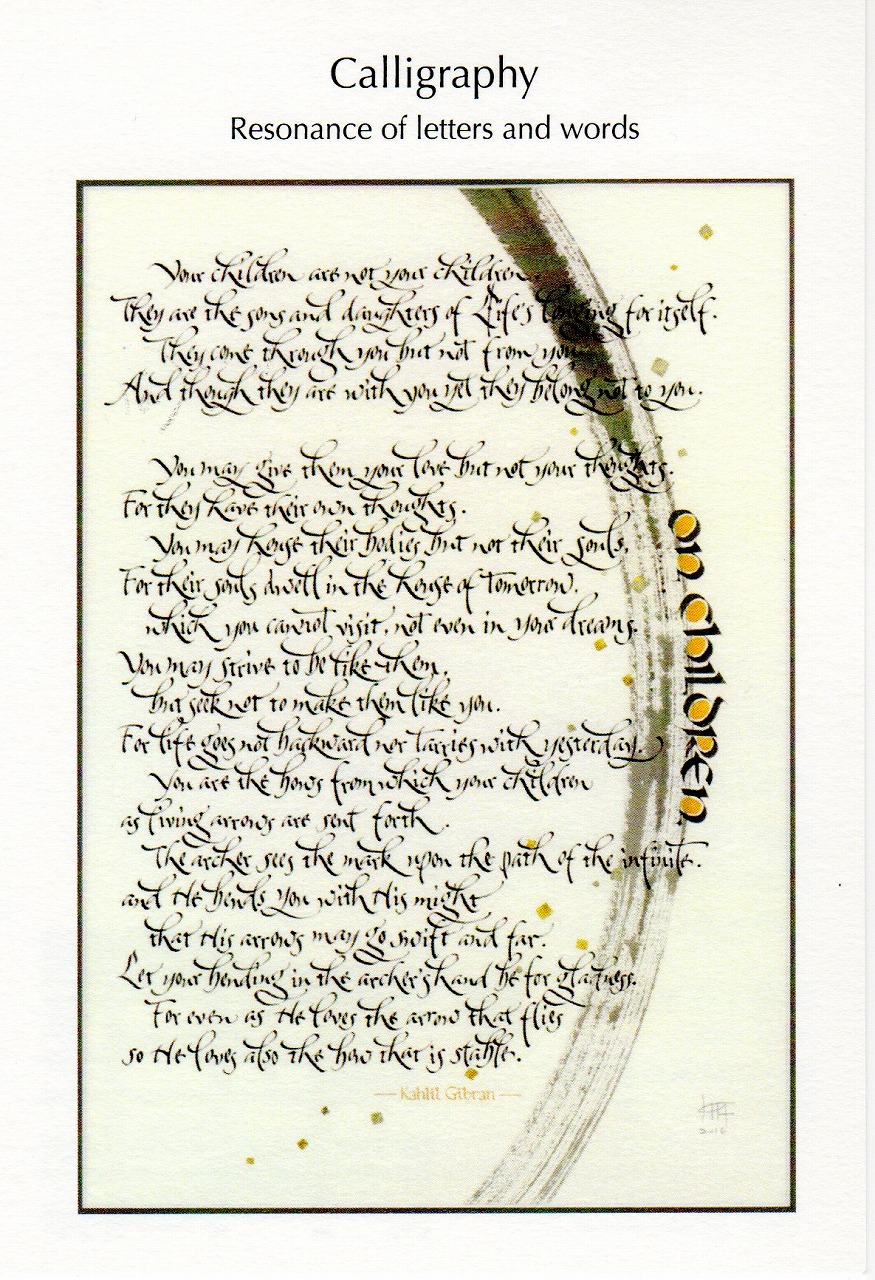 Calligraphy
Resonance of letters and words
Your children are not your children.
They are the sons and daughters of Life's longing for itself.
They come through you but not from you.
And though they are with you yet they belong not to you.
You may give them your love but not your thoughts.
For they have their own thoughts.
You may house their bodies but not their souls.
For their souls dwell in the house of tomorrow.
which you cannot visit, not even in your dreams.
You may strive to be like them,
but seek not to make them like you.
For life goes not backward nor tarries with yesterday.
You are the bows from which your children
as living arrows are sent forth.
The archer sees the mark upon the path of the infinite.
and He bends you with His might
that His arrows may go swift and far.
Let your bending in the archer's hand be for gladness.
For even as He loves the arrow that flies
so He loves also the bow that is stable.
— Kahlil Gibran —
On Children
2016